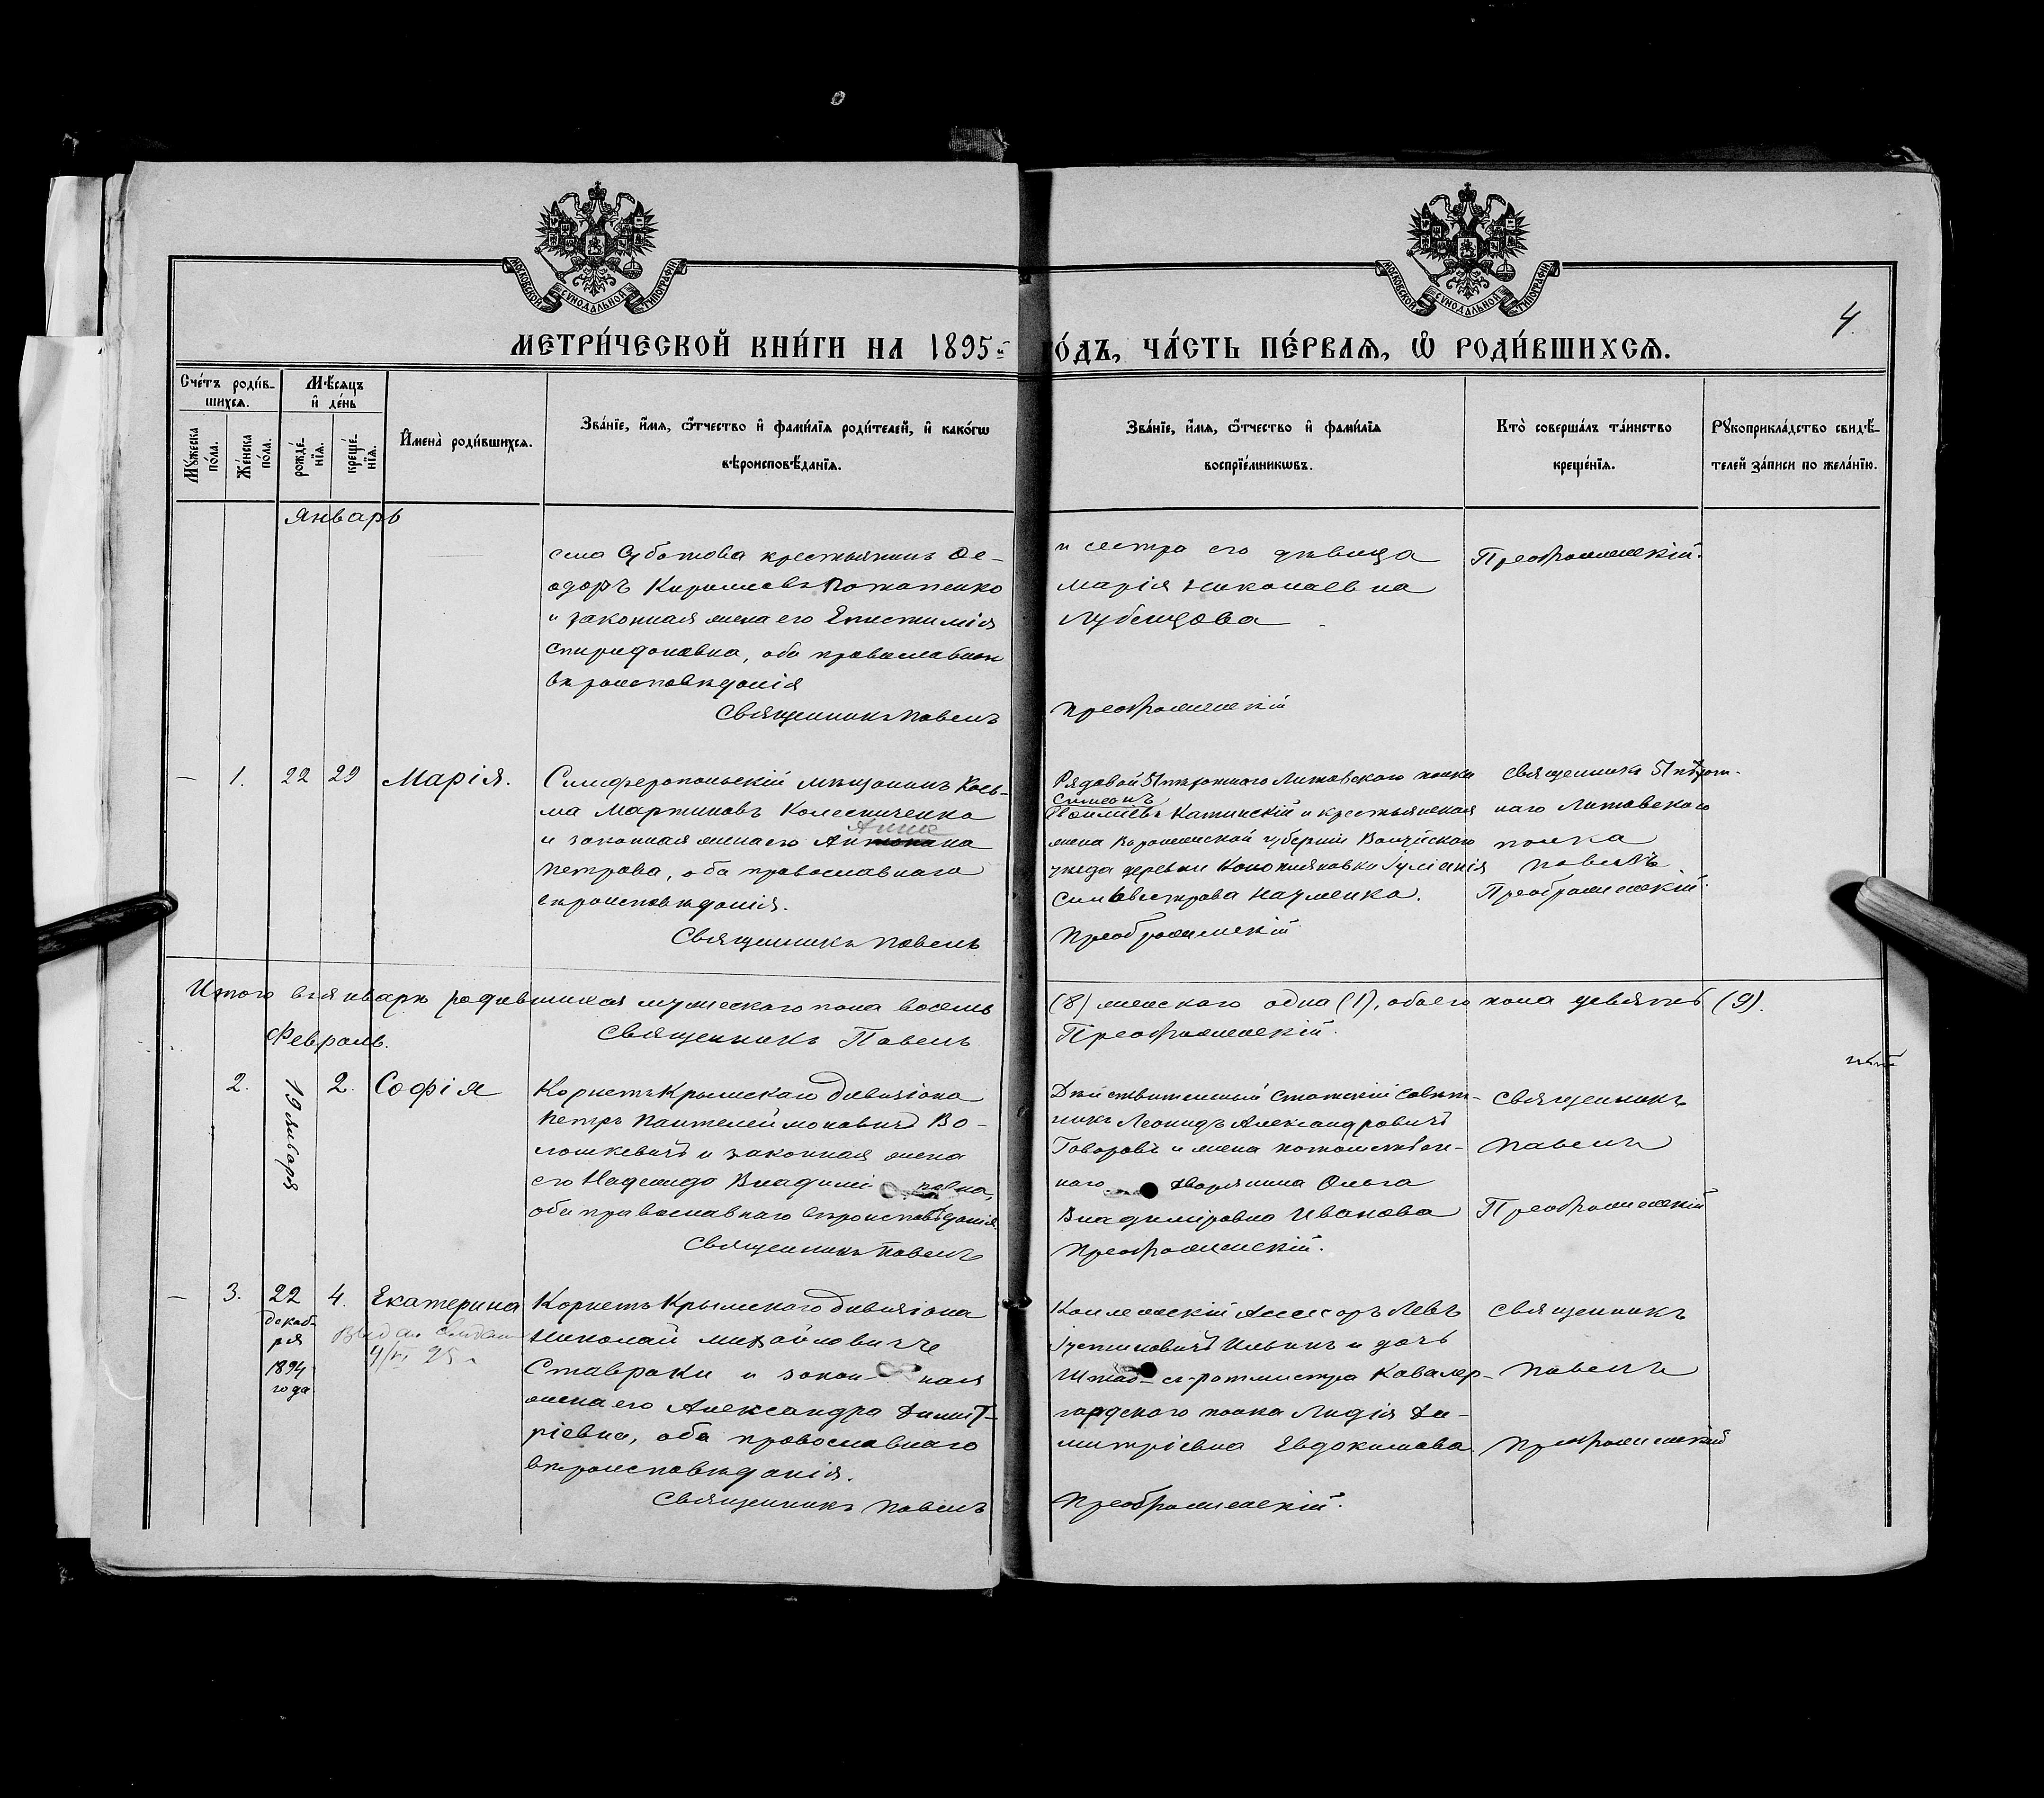 МОСКОВСКОЙ СѴНОДАЛЬНОЙ ТИПОГРАФІИ
МОСКОВСКОЙ СѴНОДАЛЬНОЙ ТИПОГРАФІИ
4.
МЕТРИ́ЧЕСКОЙ КНИ́ГИ НА 1895й ГО́ДЪ, ЧА́СТЬ ПЕ́РВАЯ, Ѡ҆ РОДИ́ВШИХСЯ.
Сче́тъ роди́в-
шихся.
Мѣ́сяцъ
и҆ де́нь
Мꙋ́жеска
по́ла.
Же́нска
по́ла.
рожде́-
нїя.
креще́-
нїя.
И҆мена̀ роди́вшихся.
Зва́нїе, и҆́мя, ѻ҆́тчество и҆ фами́лїя роди́телей, и҆ како́гѡ
вѣроисповѣ́данїя.
Зва́нїе, и҆́мя, ѻ҆́тчество и҆ фами́лїя
воспрїе́мникѡвъ.
Кто̀ соверша́лъ та́инство
креще́нїя.
Рꙋкоприкла́дство свидѣ́-
телей за́писи по жела́нїю.
Январь
села Суботова крестьянинъ Ѳе-
одоръ Кирилловъ Потапенко
и законная жена его Епистимія
Спиридоновна, оба православнаго
вѣроисповѣданія
Священникъ Павелъ
и сестра его дѣвица
Марія Николаевна
Лубенцова
Преображенскій
Преображенскій.
— 1. 22 29 Марія.
Симферопольскій мѣщанинъ Кось-
ма Мартиновъ Колесниченко
Анна
и законная жена его
Петрова, оба православнаго
вѣроисповѣданія.
Священникъ Павелъ
Рядовой 51 пѣхотнаго Литовскаго полка
Симеонъ
Катинскій и крестьянская
жена Воронежской губерніи Валуйскаго
уѣзда деревни Іуліанія
Сильвестрова Науменко.
Преображенскій
Священникъ 51 пѣхот-
наго Литовскаго
полка
Павелъ
Преображенскій.
Итого въ январѣ родившихся мужескаго пола восемь (8) женскаго одна (1), обоего пола девять (9).
Священникъ Павелъ Преображенскій.
Февраль.
2. 19 января 2. Софія
Корнетъ Крымскаго дивизіона
Петръ Пантелеймоновичъ Во-
лошкевичъ и законная жена
его Надежда Владиміровна,
оба православнаго вѣроисповѣданія.
Священникъ Павелъ
Дѣйствительный Статскій Совѣт-
никъ Леонидъ Александровичъ
Говоровъ и жена потомствен-
наго дворянина Ольга
Владиміровна Иванова
Преображенскій.
Священникъ
Павелъ
Преображенскій
— 3. 22 4. Екатерина
декаб-
ря
1894
года
Корнетъ Крымскаго дивизіона
Николай Михайловичъ
Ставраки и закон- ная
жена его Александра Димит-
ріевна, оба православнаго
вѣроисповѣданія.
Священникъ Павелъ
Коллежскій Ассесоръ Левъ
Іустиновичъ Ильинъ и дочь
Штабс-ротмистра Кавалер-
гардскаго полка Лидія Ди-
митріевна Евдокимова
Преображенскій.
Священникъ
Павелъ
Преображенскій